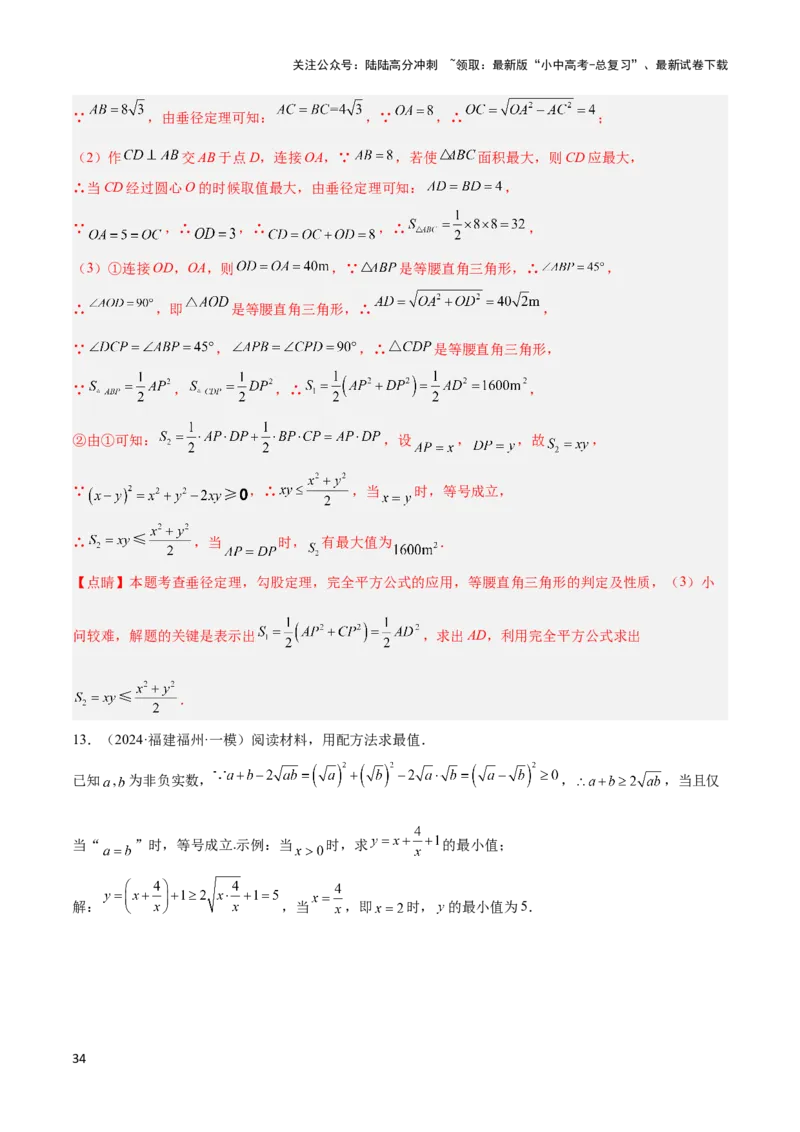 关注公众号：陆陆高分冲刺 ~领取：最新版“小中高考-总复习”、最新试卷下载
∵ AB=8√3，由垂径定理可知：AC=BC=4√3，∵ OA=8，∴ OC=√(OA²-AC²)=4；
（2）作CD⊥AB交AB于点D，连接OA，∵ AB=8，若使△ABC面积最大，则CD应最大，
∴当CD经过圆心O的时候取值最大，由垂径定理可知：AD=BD=4，
∵ OA=5=OC，∴ OD=3，∴ CD=OC+OD=8，∴ S△ABC=1/2×8×8=32，
（3）①连接OD，OA，则OD=OA=40m，∵△ABP是等腰直角三角形，∴∠ABP=45°，
∴∠AOD=90°，即△AOD是等腰直角三角形，∴ AD=√(OA²+OD²)=40√2m，
∵∠DCP=∠ABP=45°，∠APB=∠CPD=90°，∴△CDP是等腰直角三角形，
∵ S△ABP=1/2AP²，S△CDP=1/2DP²，∴ S₁=1/2(AP²+DP²)=1/2AD²=1600m²，
②由①可知：S₂=1/2·AP·DP+1/2·BP·CP=AP·DP，设AP=x，DP=y，故S₂=xy，
∵(x-y)²=x²+y²-2xy≥0，∴xy≤(x²+y²)/2，当x=y时，等号成立，
∴ S₂=xy≤(x²+y²)/2，当AP=DP时，S₂有最大值为1600m²．
【点睛】本题考查垂径定理，勾股定理，完全平方公式的应用，等腰直角三角形的判定及性质，（3）小
问较难，解题的关键是表示出S₁=1/2(AP²+CP²)=1/2AD²，求出AD，利用完全平方公式求出
S₂=xy≤(x²+y²)/2．
13．（2024·福建福州·一模）阅读材料，用配方法求最值．
已知a,b为非负实数，∵a+b-2√ab=(√a)²+(√b)²-2√a·√b=(√a-√b)²≥0，∴a+b≥2√ab，当且仅
当“a=b”时，等号成立.示例：当x>0时，求y=x+4/x+1的最小值；
解：y=(x+4/x)+1≥2√(x·4/x)+1=5，当x=4/x，即x=2时，y的最小值为5．
34